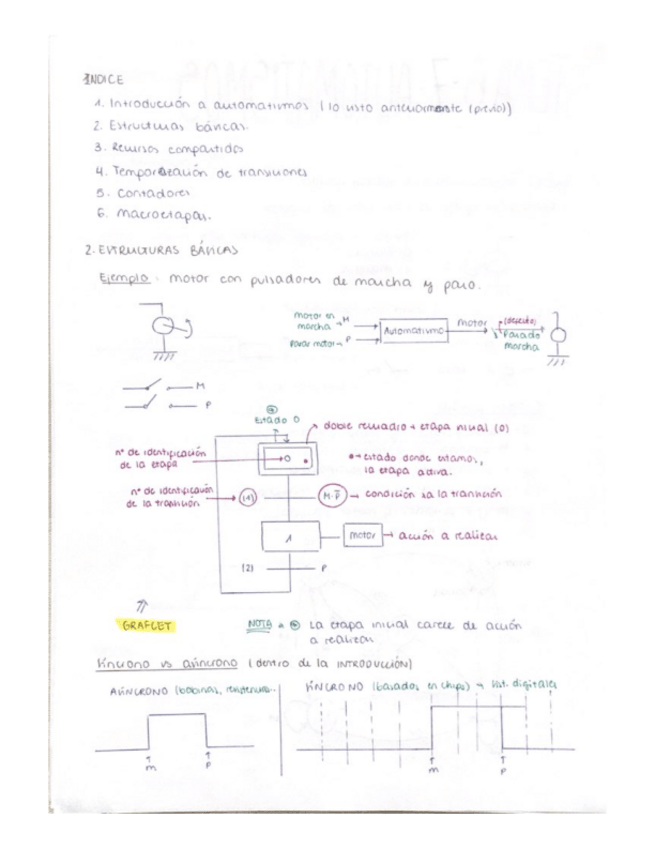 INDICE
1. Introducción a automatismos (lo visto anteriormente (previo))
2. Estructuras básicas.
3. Recursos compartidos
4. Temporización de transiciones
5. Contadores
6. Macroetapas.
2. ESTRUCTURAS BÁSICAS
Ejemplo: motor con pulsadores de marcha y paro.
motor en marcha → M
parar motor → P
Automatismo
motor
(defecto)
Parado
marcha
M
P
Estado 0
doble recuadro → etapa inicial (0)
nº de identificación de la etapa
0
estado donde estamos,
la etapa activa.
nº de identificación de la transición
(1)
M·P̅ → condición
la transición
1
motor → acción a realizar
(2)
P
GRAFCET
NOTA
La etapa inicial carece de acción
a realizar
Síncrono vs asíncrono (dentro de la INTRODUCCIÓN)
ASÍNCRONO (bobinas,
SÍNCRONO (basados en chips) →
digitales
m
P
m
P